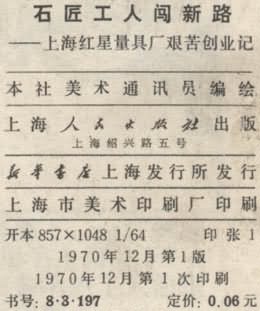 石匠工人闯新路
——上海红星量具厂艰苦创业记
本社美术通讯员编绘
上海人民出版社出版
上海绍兴路五号
新华书店上海发行所发行
上海市美术印刷厂印刷
开本 857×1048 1/64 印张 1
1970年12月第1版
1970年12月第1次印刷
书号: 8·3·197 定价: 0.06元